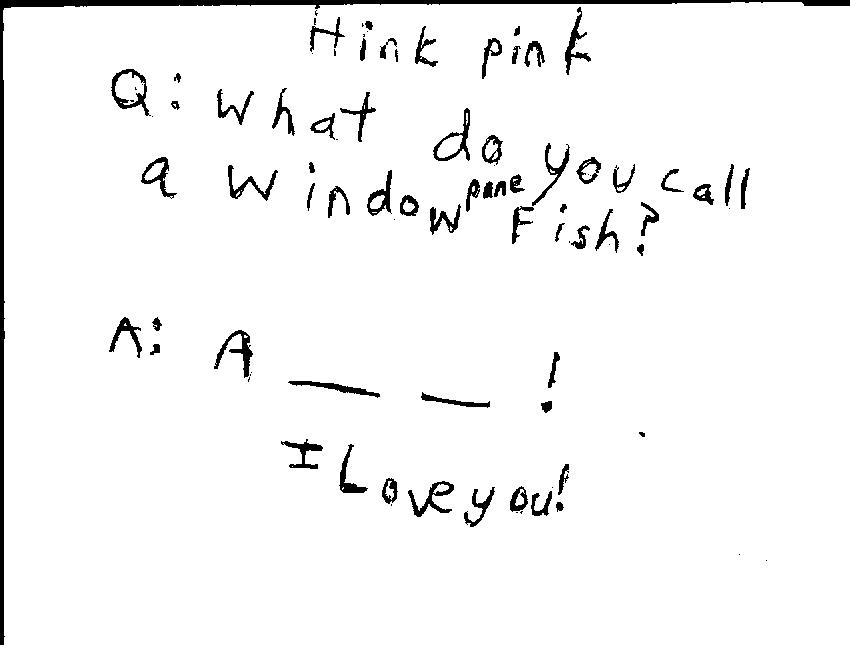 Hink pink
Q: What do you call
a window pane Fish?
A: A __ __ !
I Love you!